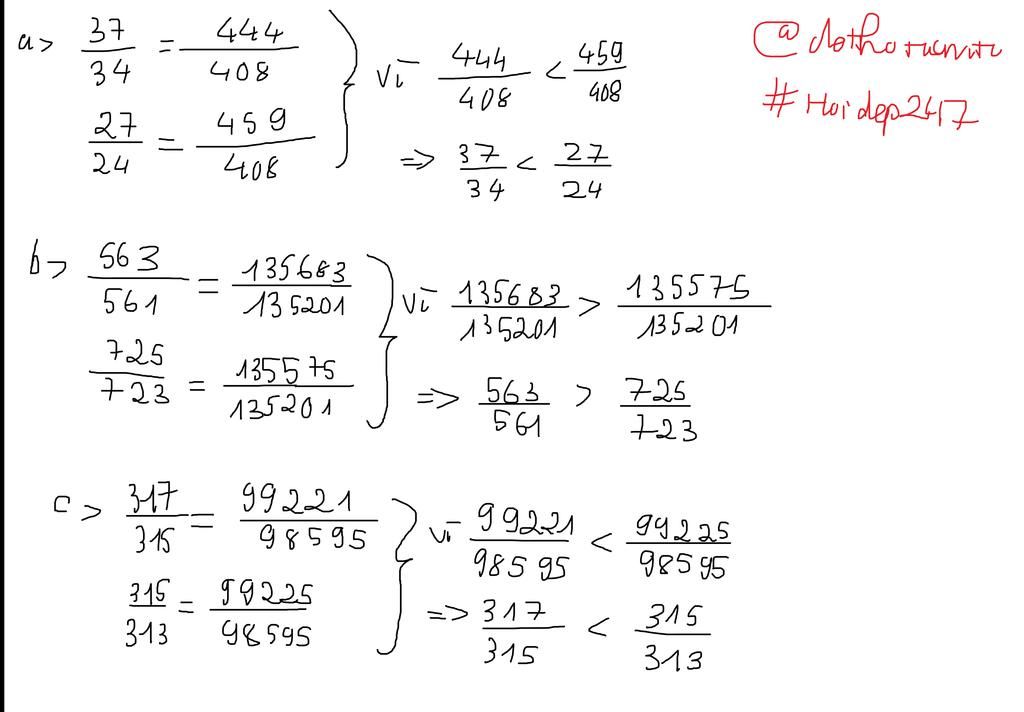 a> 37/34 = 444/408
27/24 = 459/408
vì 444/408 < 459/408
=> 37/34 < 27/24
b> 563/561 = 135683/135201
725/723 = 135575/135201
vì 135683/135201 > 135575/135201
=> 563/561 > 725/723
c> 317/315 = 99221/98595
315/313 = 99225/98595
vì 99221/98595 < 99225/98595
=> 317/315 < 315/313
#Hoidep247